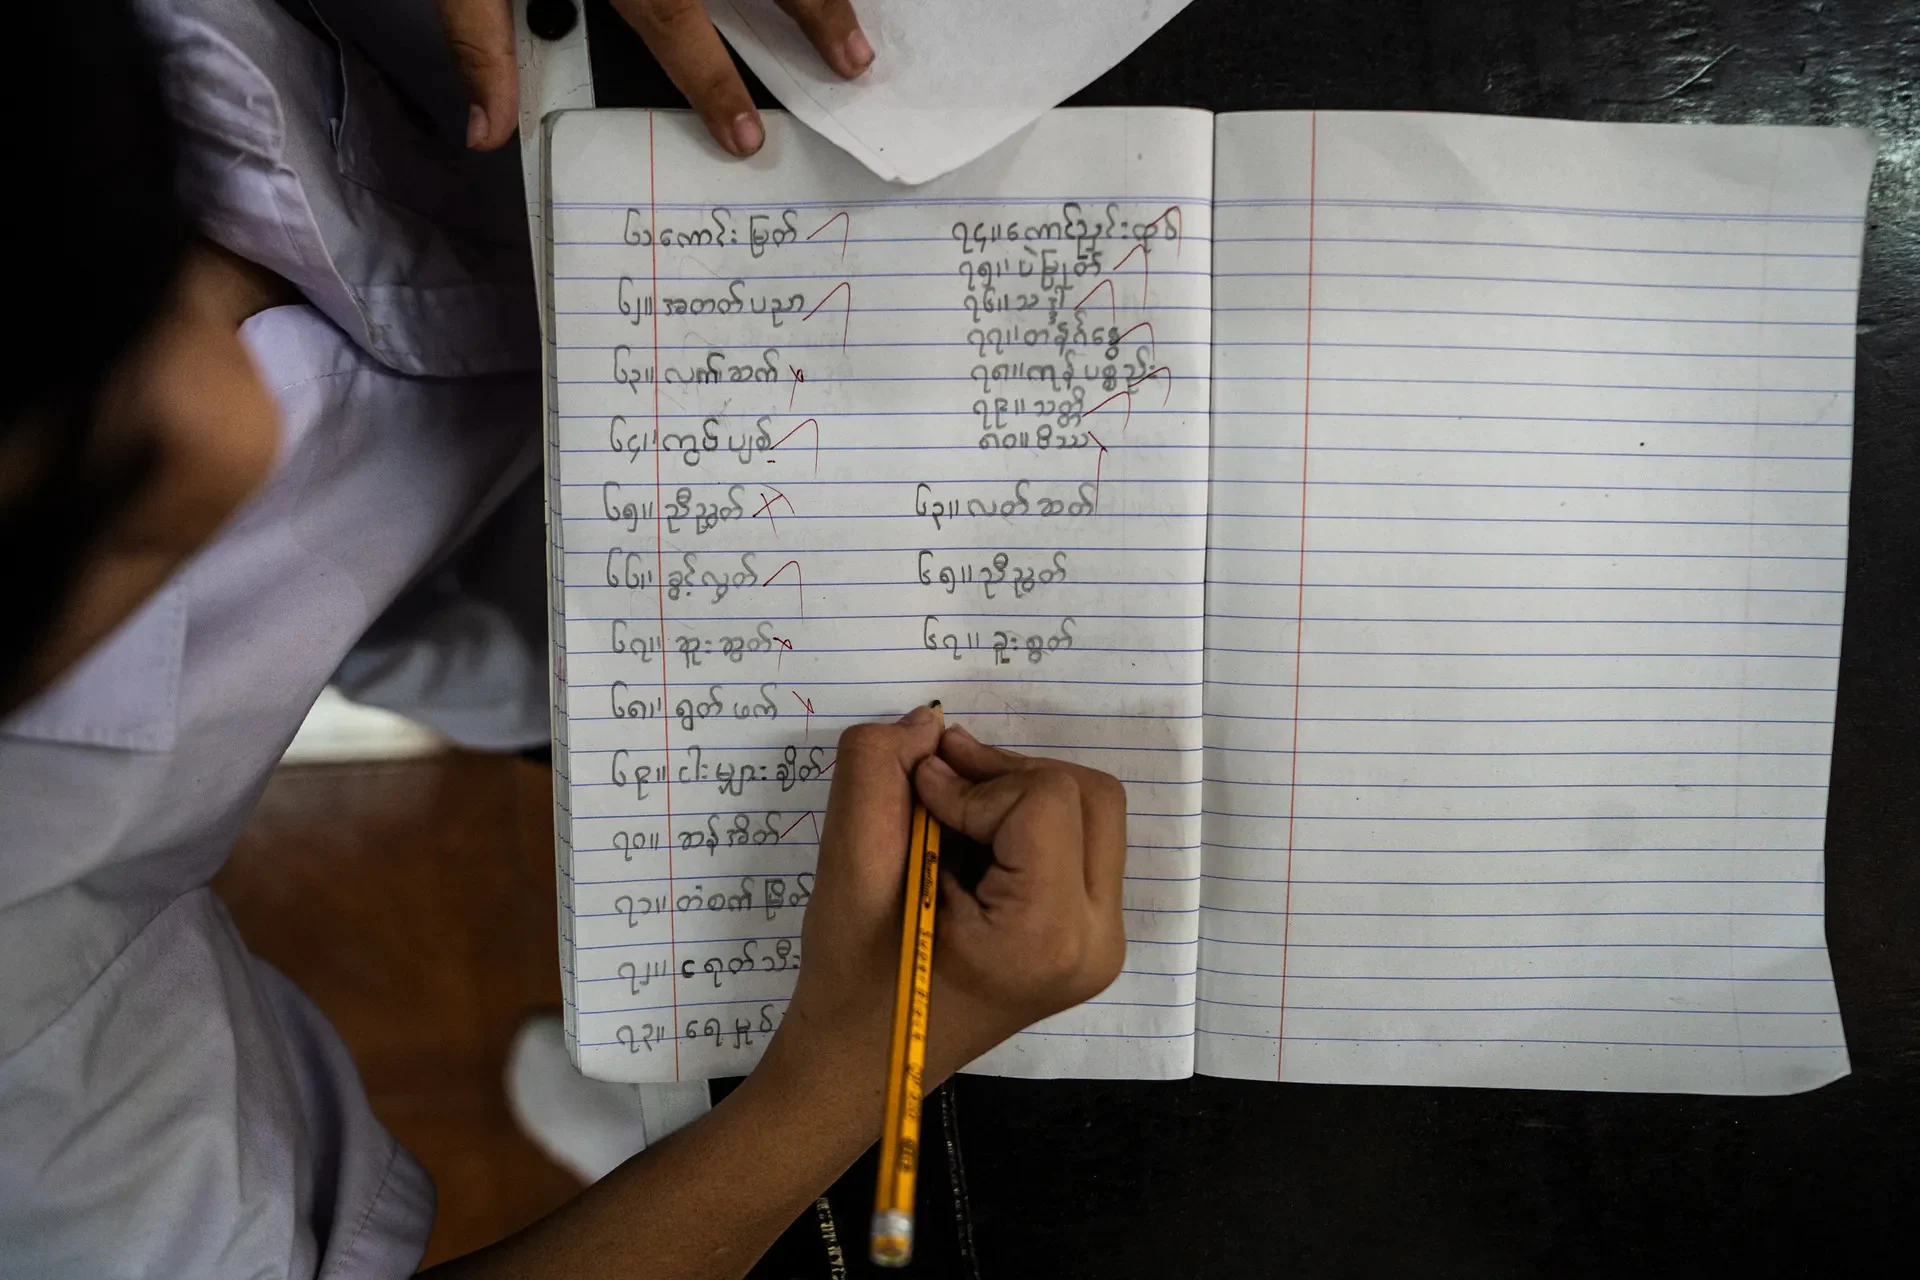 ၆၁ ကောင်းမြတ်
၆၂။ အတတ်ပညာ
၆၃။ လက်ဆက်
၆၄။ ကျွမ်ပျစ်
၆၅။ ညီညွှတ်
၆၆။ ခွင့်လွှတ်
၆၇။ ဆူးဆွတ်
၆၈။ ရွတ်ဖက်
၆၉။ ငါးမျှားချိတ်
၇၀။ ဆန်အိတ်
၇၁။ တံစက်မြိတ်
၇၂။ ရေတ်သီး
၇၃။ ရေမှုစ်
၇၄။ ကောင်းညှင်းထုပ်
၇၅။ ပဲပြုတ်
၇၆။ သဒ္ဒါ
၇၇။ တန်ဂ်ငွေ
၇၈။ ကုန်ပစ္စည်း
၇၉။ သတ္တိ
၈၀။ ဝိဿ
၆၃။ လတ်ဆတ်
၆၅။ ညီညွတ်
၆၇။ ခူးစွတ်